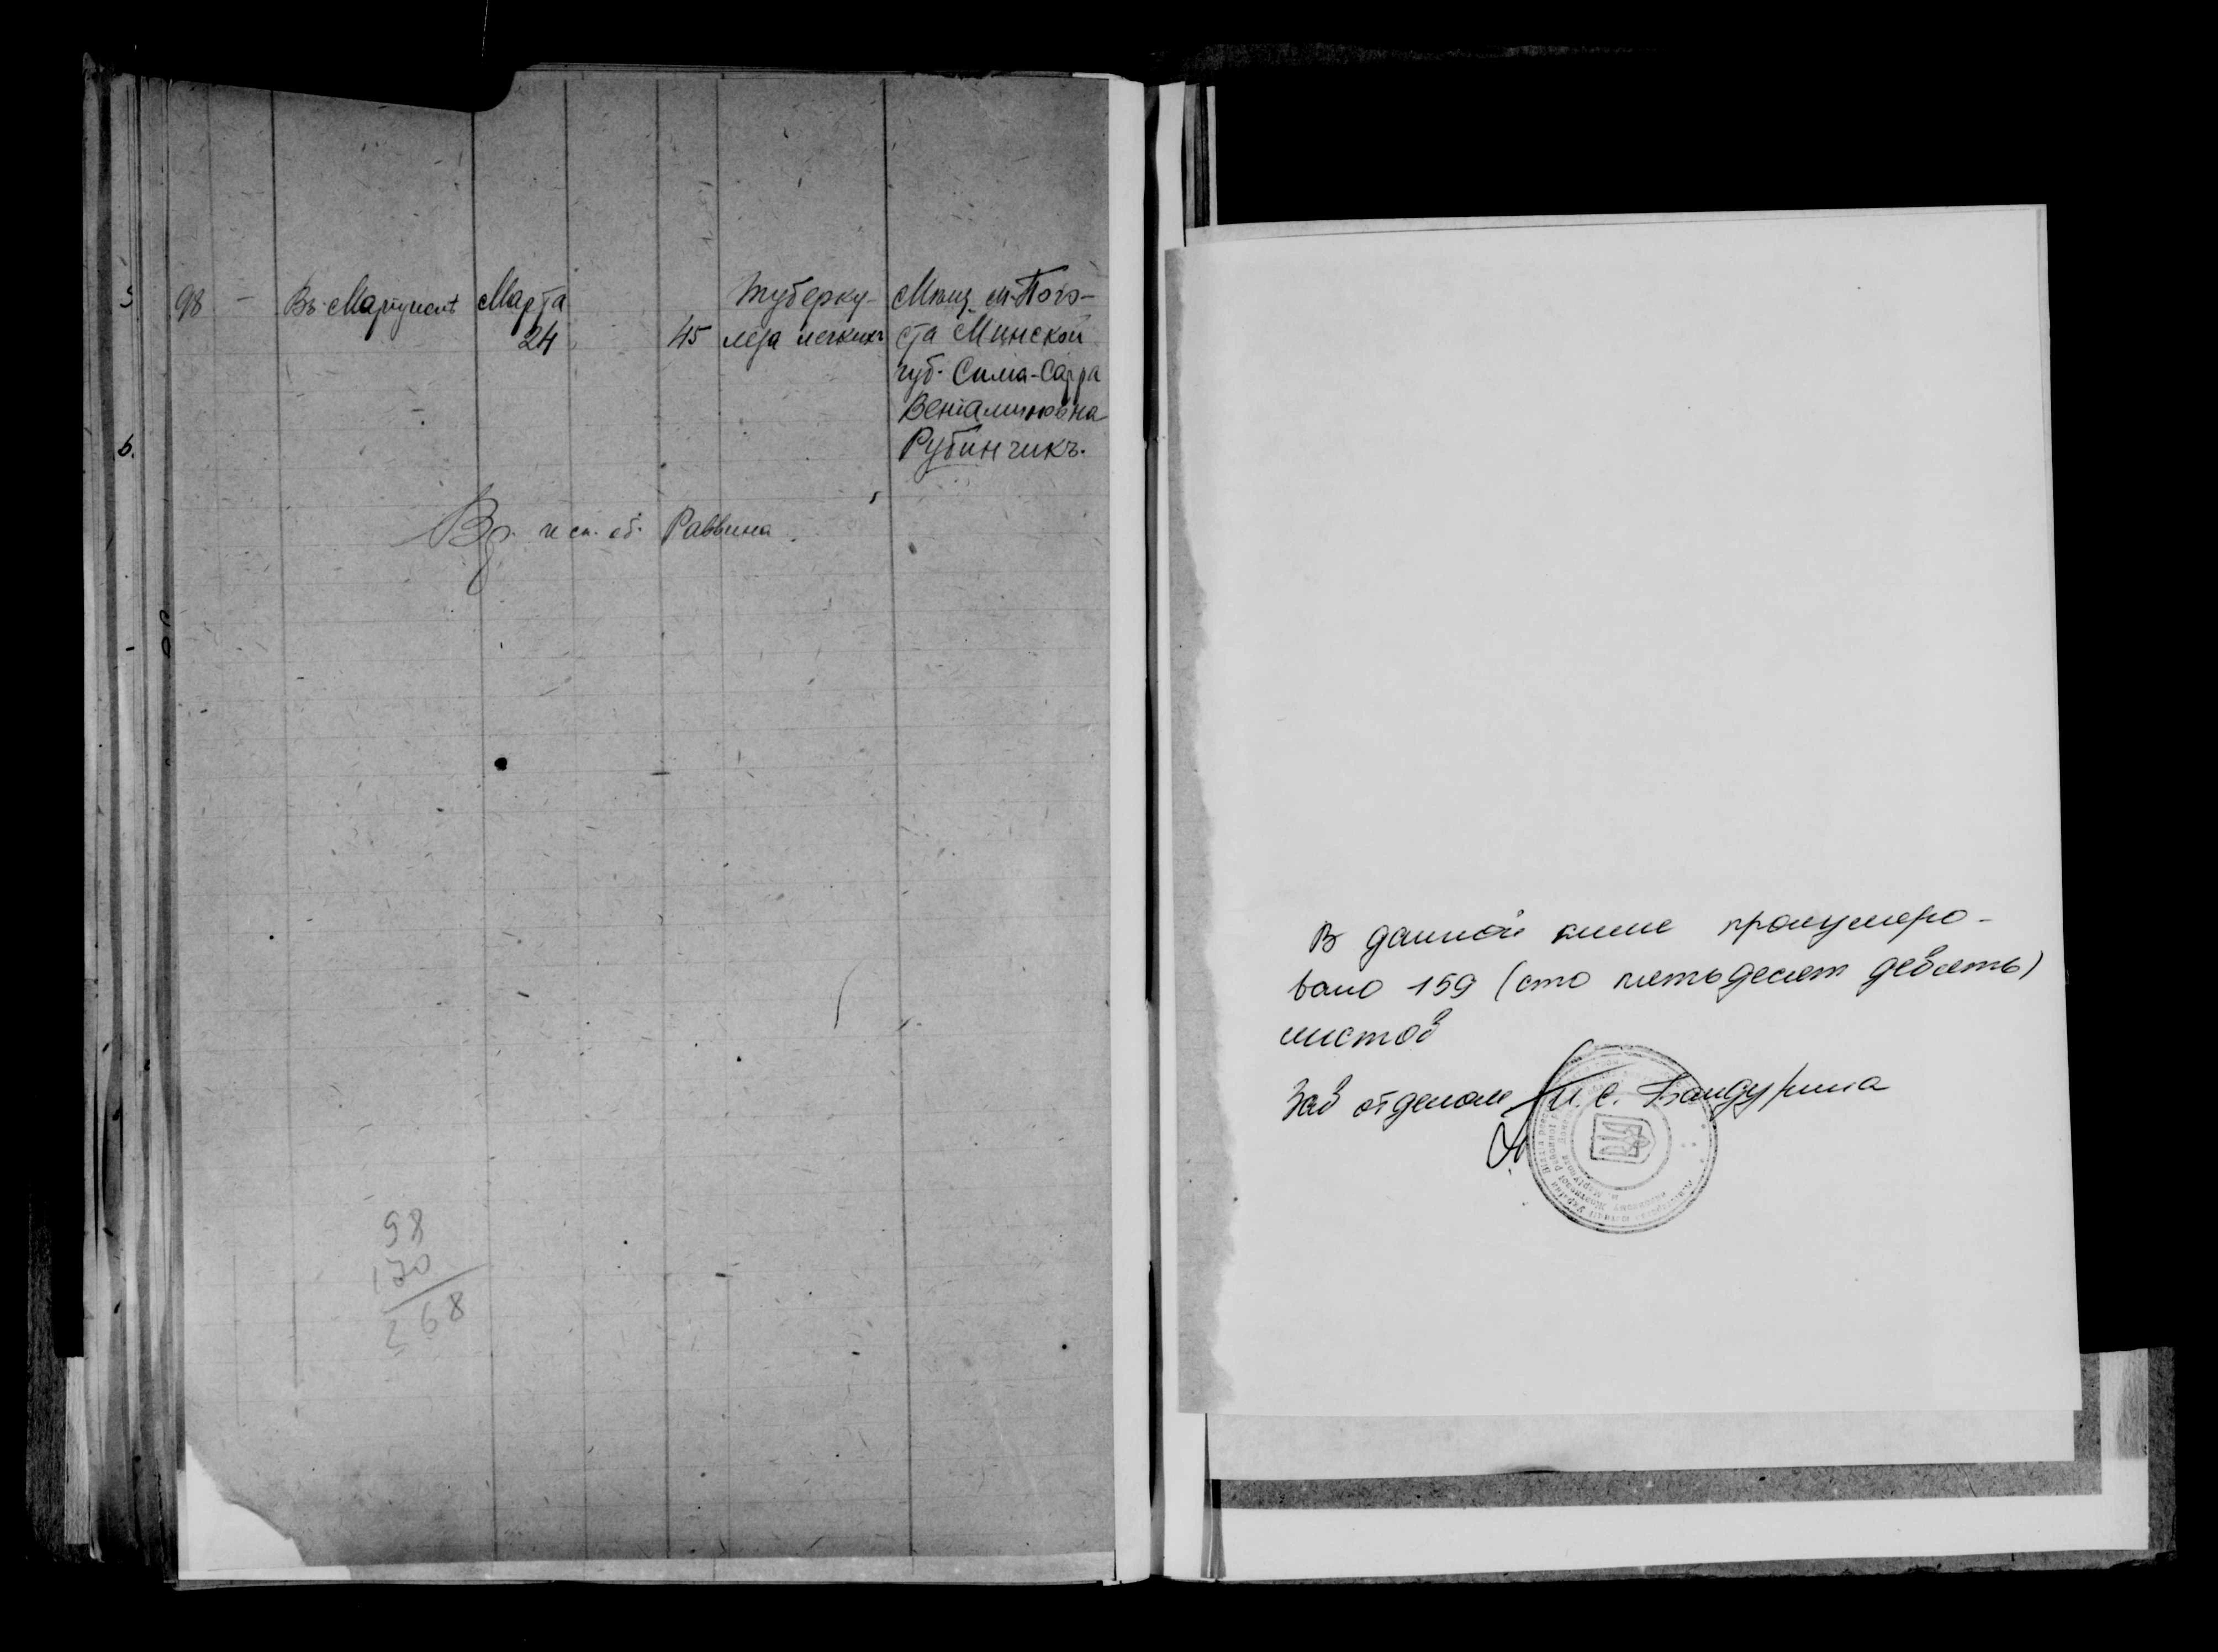 98 — Въ Мариуполѣ Марта 24 45 Туберку-
леза легкихъ
Мѣщ. м. Пого-
ста Минской
губ. Сима-Сарра
Венiаминовна
Рубинчикъ.
Вр. исп. об. Раввина
98
170
268
В данной книге пронумеро-
вано 159 (сто пятьдесят девять)
листов
Зав отделом П. С. Бандурина